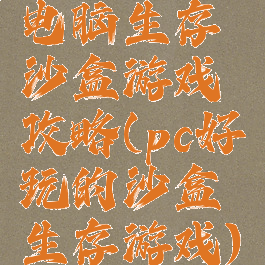 电脑生存
沙盒游戏
攻略(pc好
玩的沙盒
生存游戏)